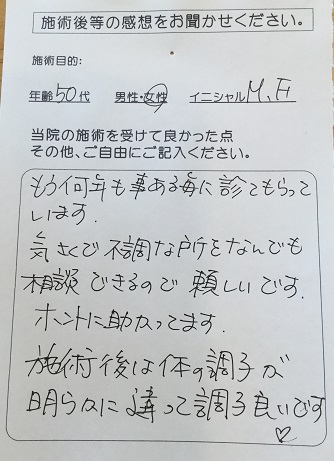 施術後等の感想をお聞かせください。
施術目的:
年齢50代 男性・女性 イニシャルM.F
当院の施術を受けて良かった点
その他、ご自由にご記入ください。
もう何年も事ある毎に診てもらって
います.
気さくで不調な所をなんでも
相談できるので頼しいです.
ホントに助かってます.
施術後は体の調子が
明らかに違って調子良いです
♡